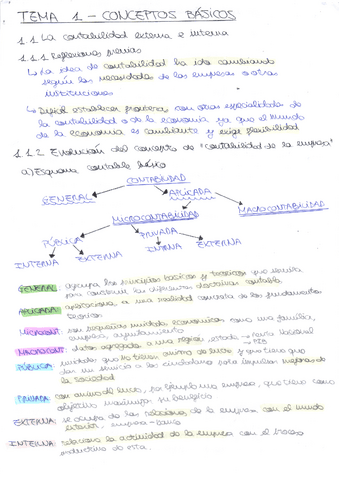 TEMA 1 - CONCEPTOS BÁSICOS
1.1 La contabilidad externa e interna
1.1.1 Reflexiones previas
↳ La idea de contabilidad ha ido cambiando
según las necesidades de las empresas o otras
instituciones
↳ Difícil establecer fronteras con otras especialidades de
la contabilidad o de la economía ya que el mundo
de la economía es cambiante y exige flexibilidad
1.1.2 Evolución del concepto de "contabilidad de la empresa"
a) Esquema contable básico
CONTABILIDAD
GENERAL APLICADA
MICROCONTABILIDAD MACROCONTABILIDAD
PÚBLICA PRIVADA
INTERNA EXTERNA INTERNA EXTERNA
GENERAL: agrupa los principios básicos y teóricos que
para construir las diferentes doctrinas contable
APLICADA: aplicaciones, a una realidad concreta de los fundamentos
teóricos
MICROCONT: son pequeñas unidades económicas como una familia,
empresa, ayuntamiento
MACROCONT: datos agregados, a una región, estado → renta nacional
→ PIB
PÚBLICA: unidades que no tienen ánimo de lucro y que tiene que
dar un servicio a los ciudadanos para
la sociedad
PRIVADA: con ánimo de lucro, por ejemplo una empresa, que tiene como
objetivo maximizar su beneficio
EXTERNA: se ocupa de las relaciones de la empresa con el mundo
exterior, empresa-banco
INTERNA: relaciona la actividad de la empresa con el proceso
productivo de esta.